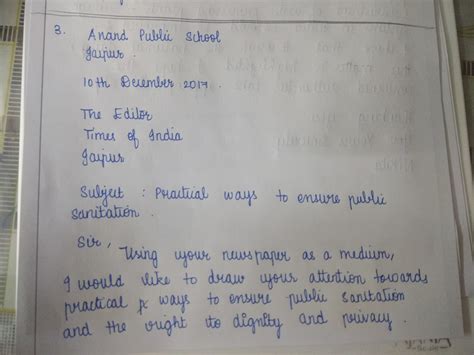 3. Anand Public School
Jaipur.
10th December 2017.
The Editor
Times of India
Jaipur
Subject : Practical ways to ensure public
sanitation.
Sir, Using your newspaper as a medium,
I would like to draw your attention towards
practical ways to ensure public sanitation
and the right to dignity and privacy.